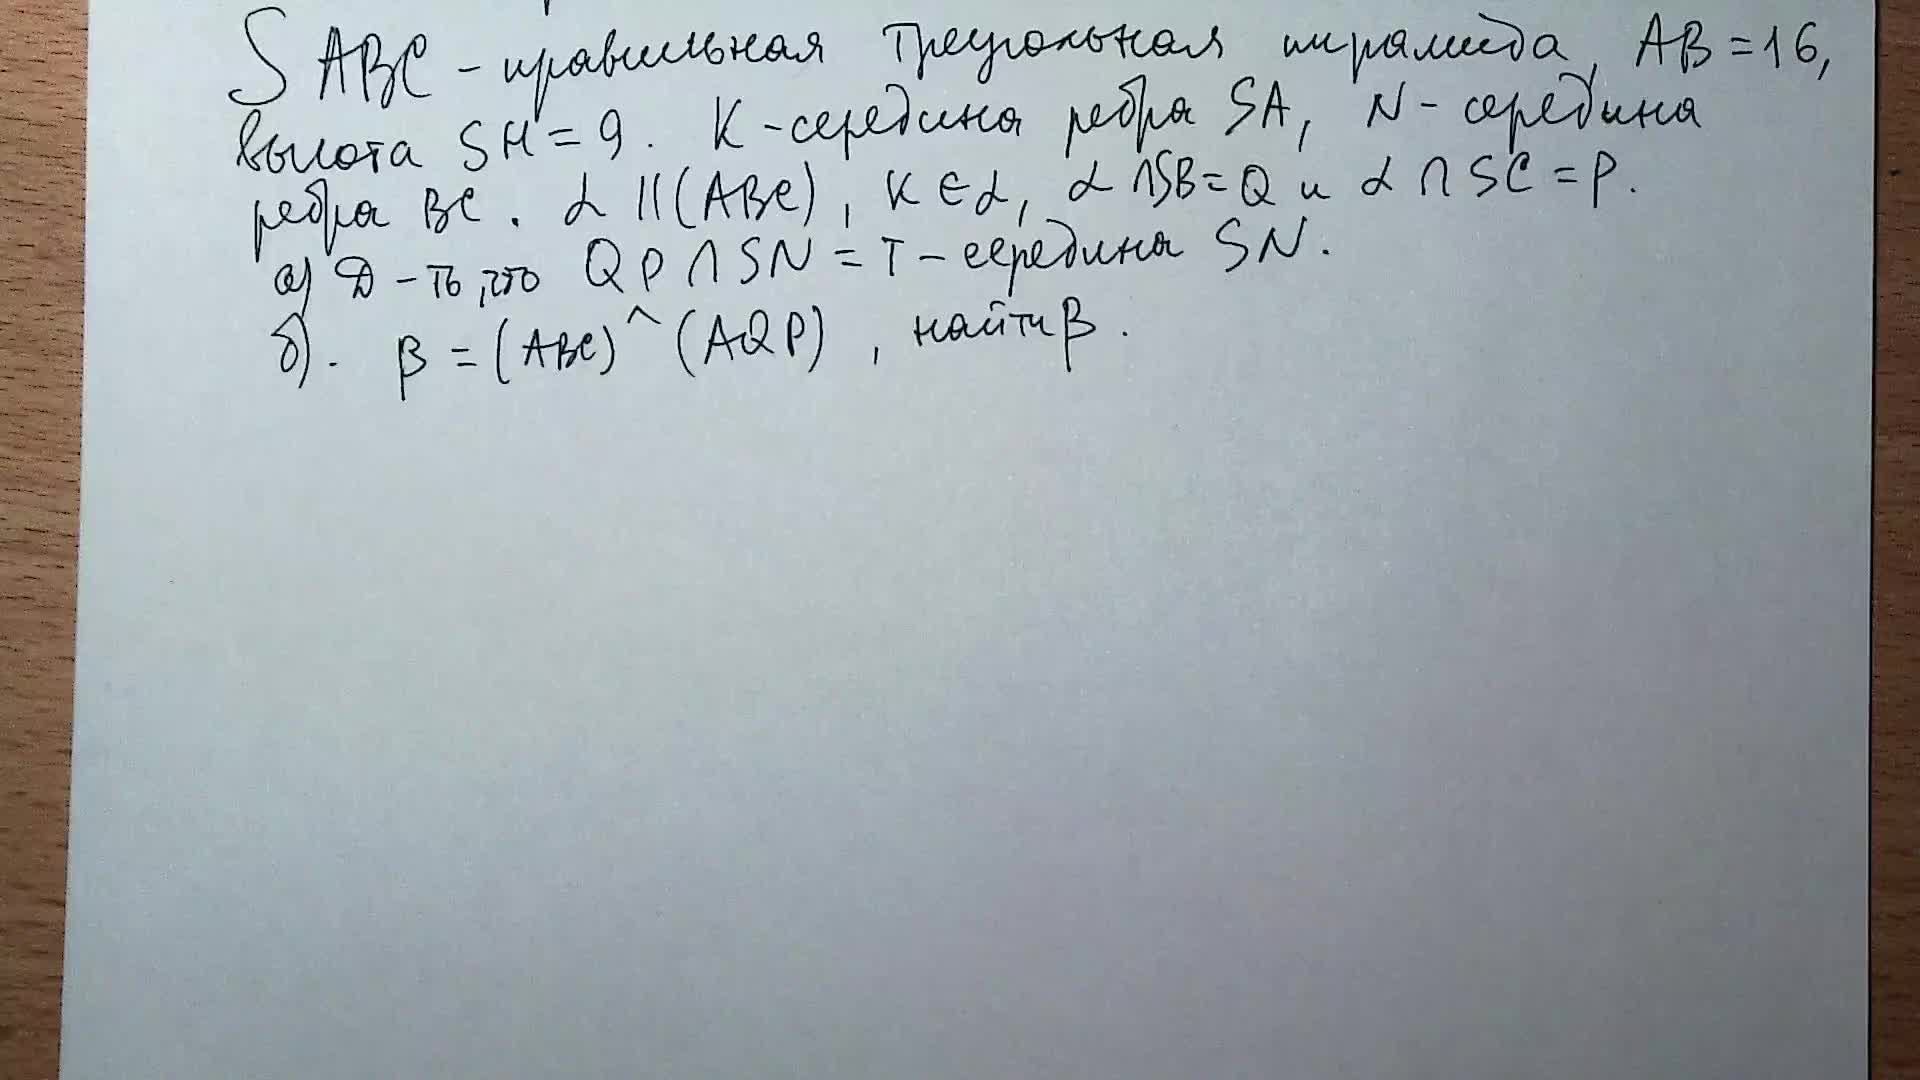 SABC - правильная треугольная пирамида, AB = 16,
высота SH = 9. K - середина ребра SA, N - середина
ребра BC. α || (ABC), K ∈ α, α ∩ SB = Q и α ∩ SC = P.
а) Д-ть, что QP ∩ SN = T - середина SN.
б). β = (ABC) ^ (AQP), найти β.